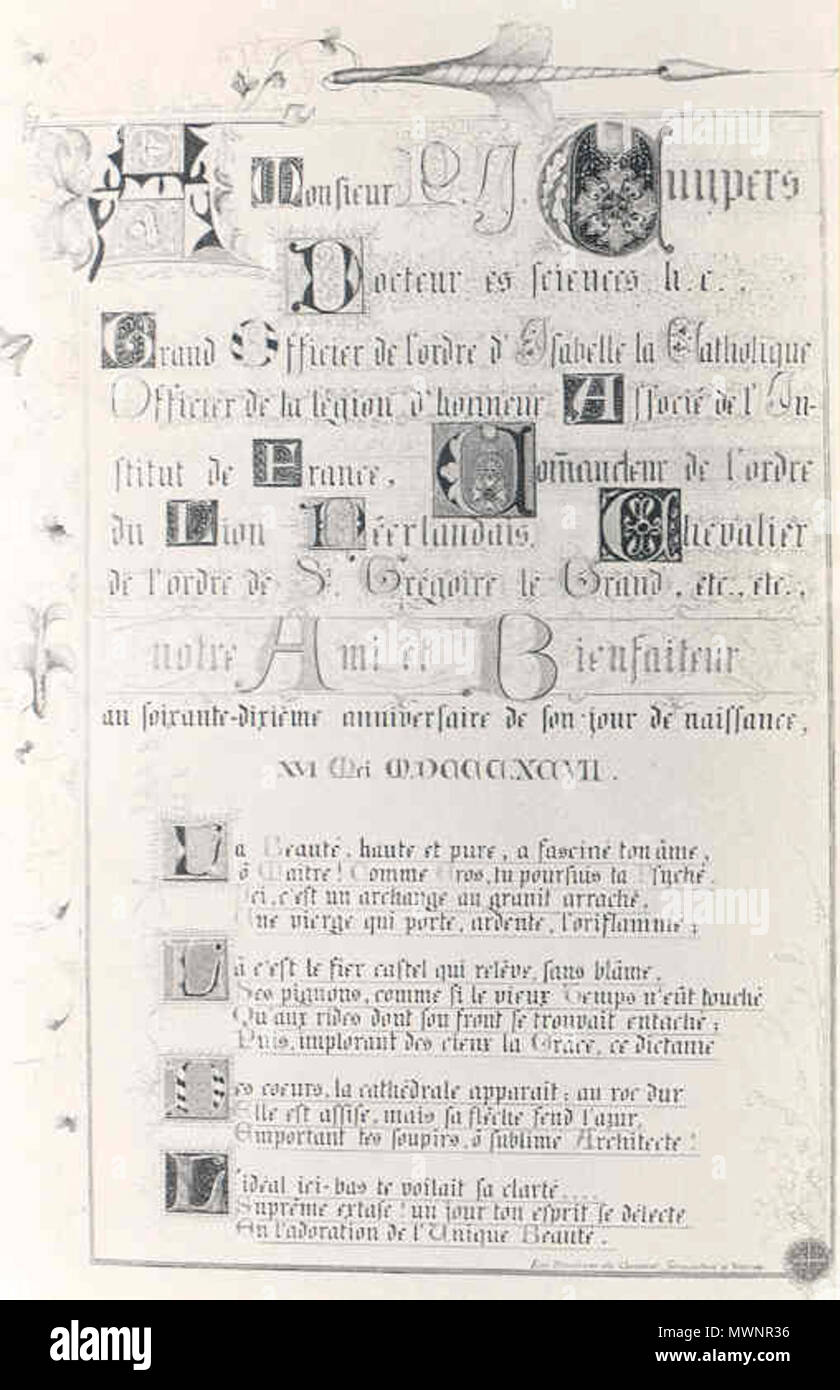 A Monsieur P. J. Cuypers
Docteur es sciences h. c.,
Grand Officier de l'ordre d'Isabelle la Catholique
Officier de la légion d'honneur Associé de l'In-
stitut de France, Com̄andeur de l'ordre
du Lion Néerlandais, Chevalier
de l'ordre de St. Grégoire le Grand, etc., etc.,
notre Ami et Bienfaiteur
au soixante-dixième anniversaire de son jour de naissance,
XVI Mei MDCCCLXCVII.
La Beauté, haute et pure, a fasciné ton âme,
ô Maître! Comme Eros, tu poursuis ta Psyché.
Ici, c'est un archange au granit arraché,
Une vierge qui porte, ardente, l'oriflamme;
Là c'est le fier castel qui relève, sans blâme,
Ses pignons, comme si le vieux Temps n'eût touché
Qu'aux rides dont son front se trouvait entaché;
Puis, implorant des cieux la Grâce, ce dictame
Des coeurs, la cathédrale apparaît: au roc dur
Elle est assise, mais sa flèche fend l'azur,
Emportant tes soupirs, ô sublime Architecte!
L'idéal ici-bas te voilait sa clarté....
Suprême extase! un jour ton esprit se délecte
En l'adoration de l'Unique Beauté.
alamy
alamy
Image ID: MWNR36
www.alamy.com